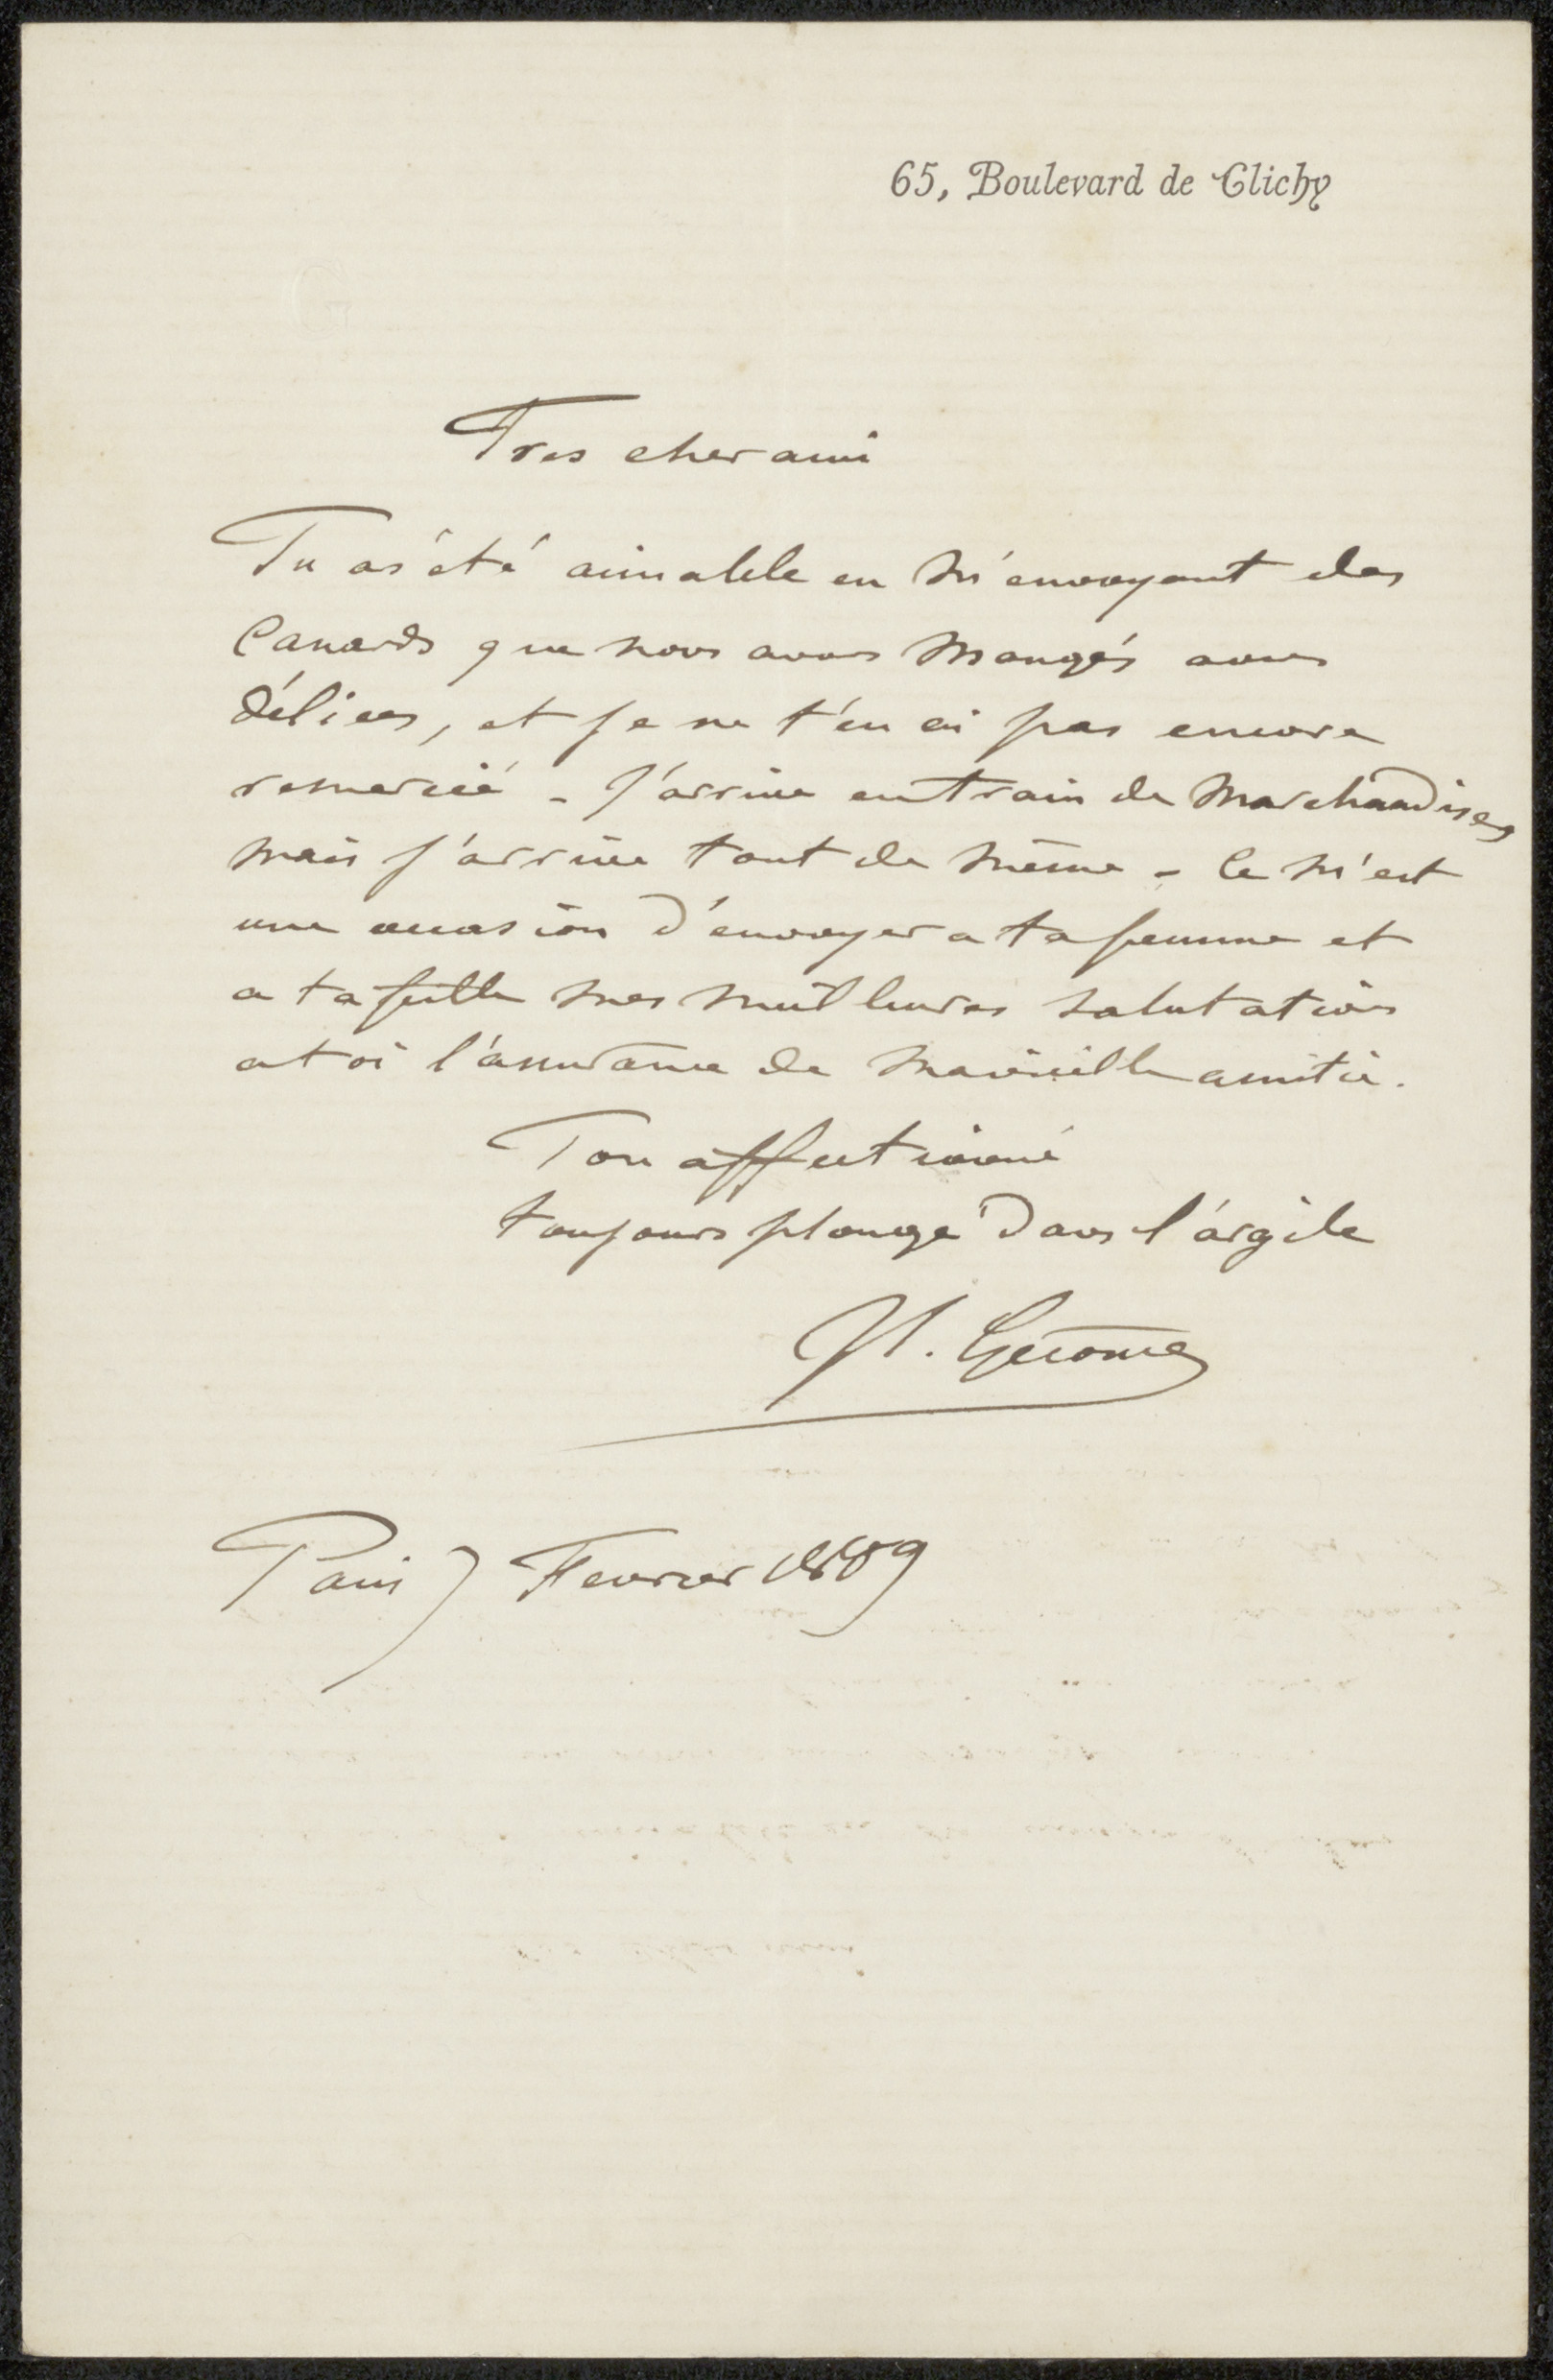 65, Boulevard de Clichy
G
Tres cher ami
Tu as été aimable en m'envoyant des
Canards que nous avons mangés avec
délices, et je ne t'en ai pas encore
remercié - J'arrive en train de marchandises
mais j'arrive tout de même - Ce m'est
une occasion d'envoyer a ta femme et
a ta fille mes meilleures salutations
a toi l'assurance de ma vieille amitié.
Ton affectionné
toujours plongé dans l'argile
JL. Gérome
Paris 7 Fevrier 1889